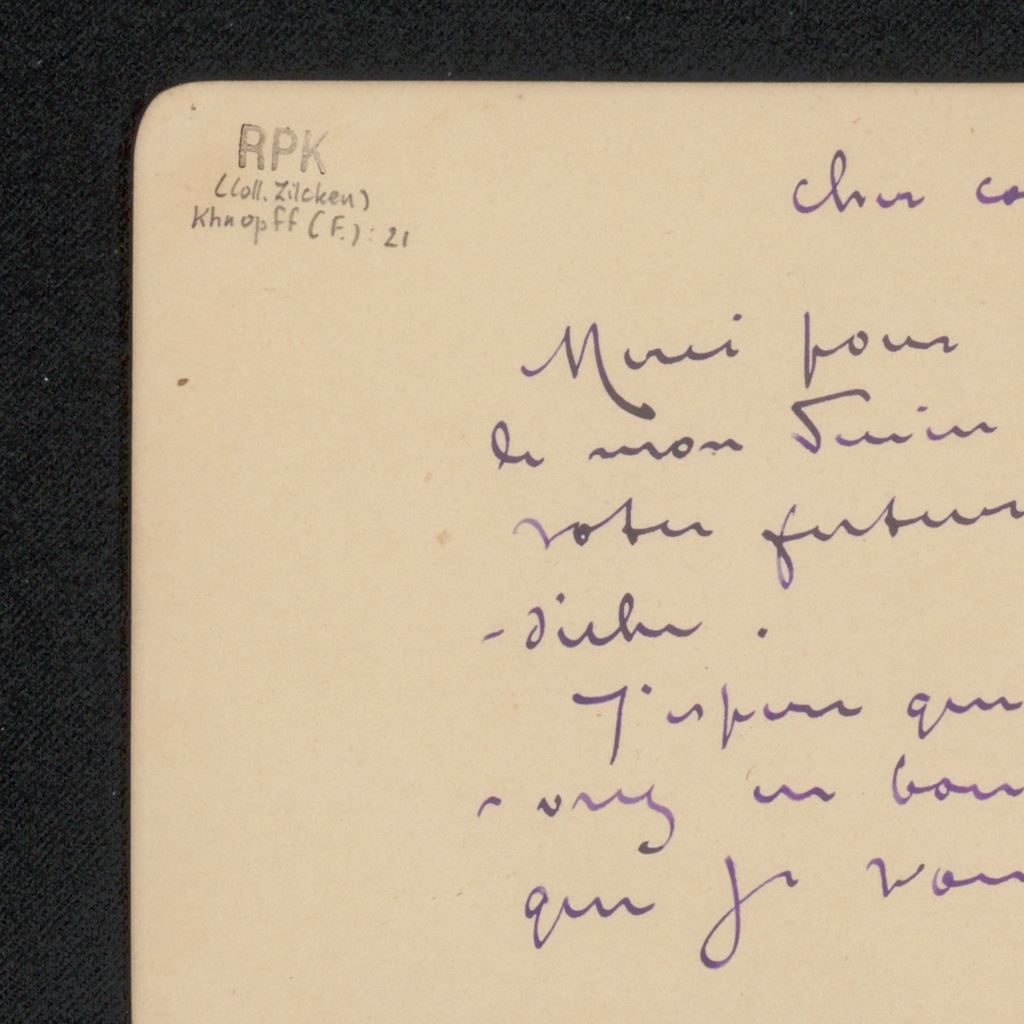 RPK
(Coll. Zilcken)
Khnopff (F.): 21
cher co
Merci pour
de mon
votre futur
J'espère que
en bon
que je vou